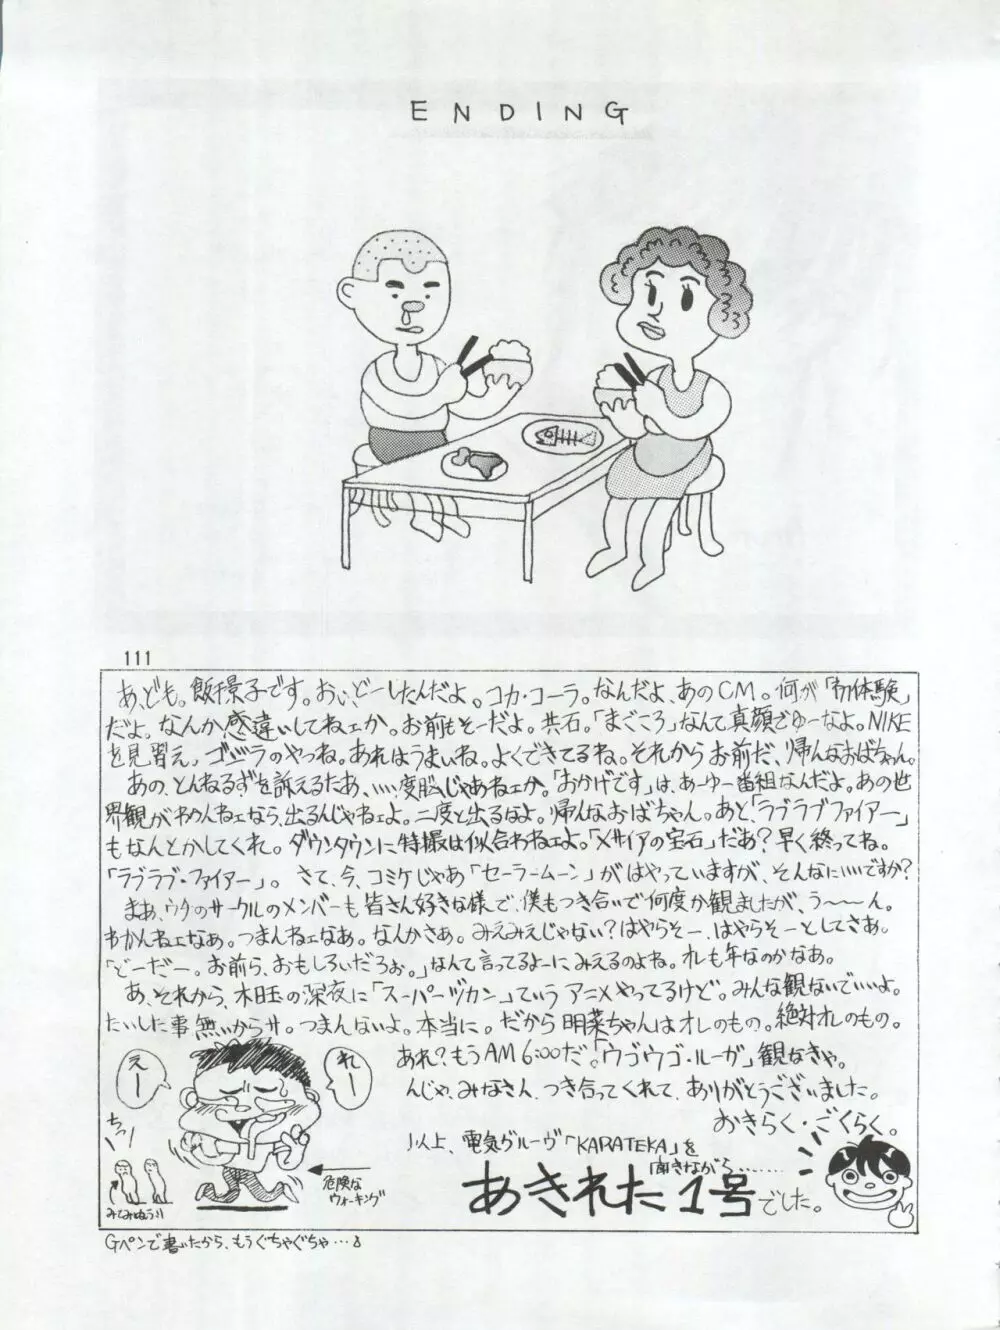 ENDING
111
あ、ども。飯干景子です。おい、どーしたんだよ。コカ・コーラ。なんだよ、あのCM。何が「初体験」
だよ。なんか感違いしてねェか。お前もそーだよ。共石。「まごころ」なんて真顔でゆーなよ。NIKE
を見習え。ゴジラのやつね。あれはうまいね。よくできてるね。それからお前だ、帰んなおばちゃん。
あの、とんねるずを訴えるたあ、いい度胸じゃあねェか。「おかげです」は、あーゆー番組なんだよ。あの世
界観がわかんねェなら、出るんじゃねェよ。二度と出るなよ。帰んなおばちゃん。あと「ラブラブファイアー」
もなんとかしてくれ。ダウンタウンに特撮は似合わねェよ。「メサイアの宝石」だあ？早く終ってね。
「ラブラブ・ファイアー」。さて、今、コミケじゃあ「セーラームーン」がはやっていますが、そんなにいいですか？
まあ、ウチのサークルのメンバーも皆さん好きな様で、僕もつき合いで何度か観ましたが、う〜〜ん。
わかんねェなあ。つまんねェなあ。なんかさあ。みえみえじゃない？はやらそー、はやらそーとしてさあ。
「どーだー。お前ら、おもしろいだろぉ。」なんて言ってるよーにみえるのよね。オレも年なのかなあ。
あ、それから、木曜の深夜に「スーパーヅカン」ていうアニメやってるけど。みんな観ないでいいよ。
たいした事無いからサ。つまんないよ。本当に。だから明菜ちゃんはオレのもの。絶対オレのもの。
あれ？もうAM6:00だ。「ウゴウゴ・ルーガ」観なきゃ。
んじゃ、みなさん、つき合ってくれて、ありがとうございました。
おきらく・ごくらく。
以上、電気グルーヴ「KARATEKA」を
聞きながら………
あきれた1号でした。
えー
れー
ちっ
みてみぬふり
危険な
ウォーキング
Gペンで書いたから、もうぐちゃぐちゃ…